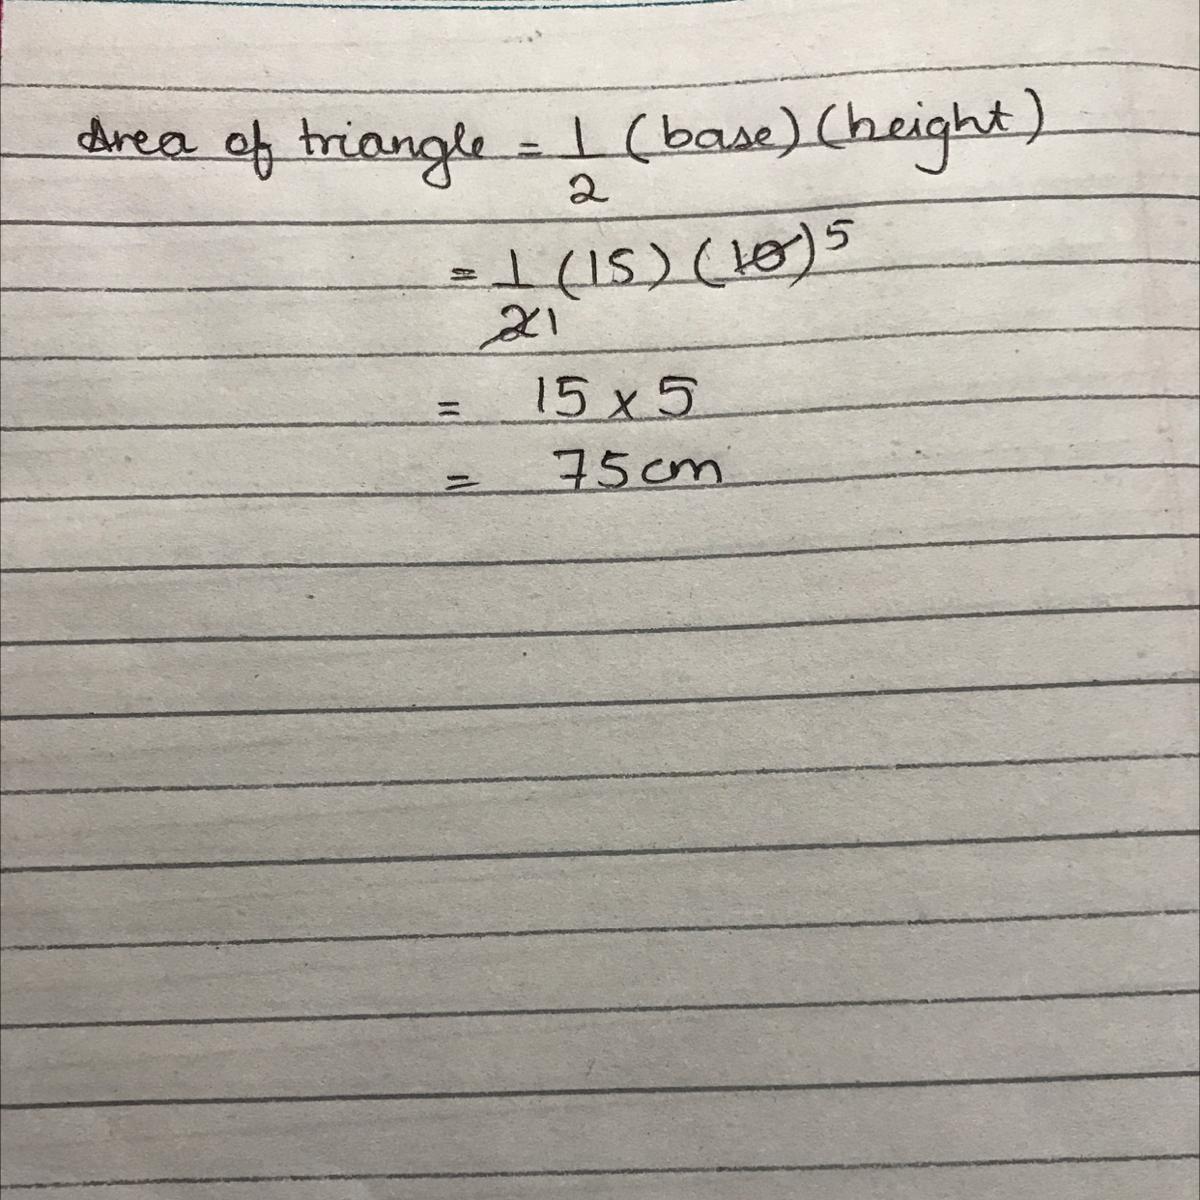 Area of triangle = 1/2 (base) (height)
= 1/21 (15) (10)5
= 15 x 5
= 75cm